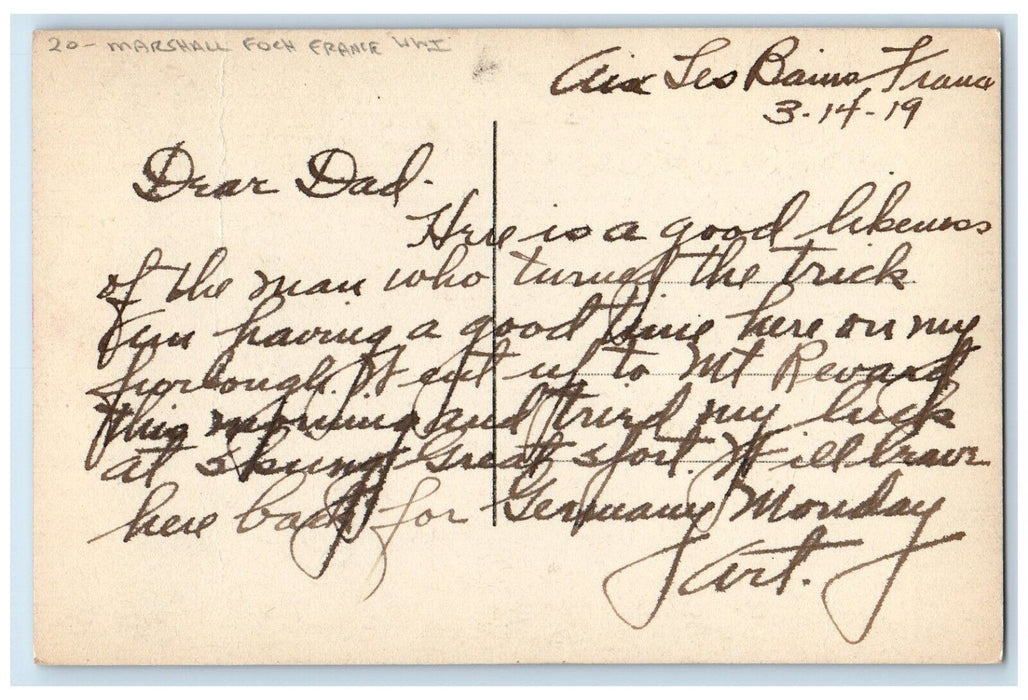 20- MARSHALL FOCH FRANCE WWI
Aix Les Bains France
3-14-19
Dear Dad-
Here is a good likeness
of the man who turned the trick
I'm having a good time here on my
furlough. Went up to Mt Revard
this morning and tried my luck
at skiing. Great sport. Will leave
here back for Germany Monday
Art.